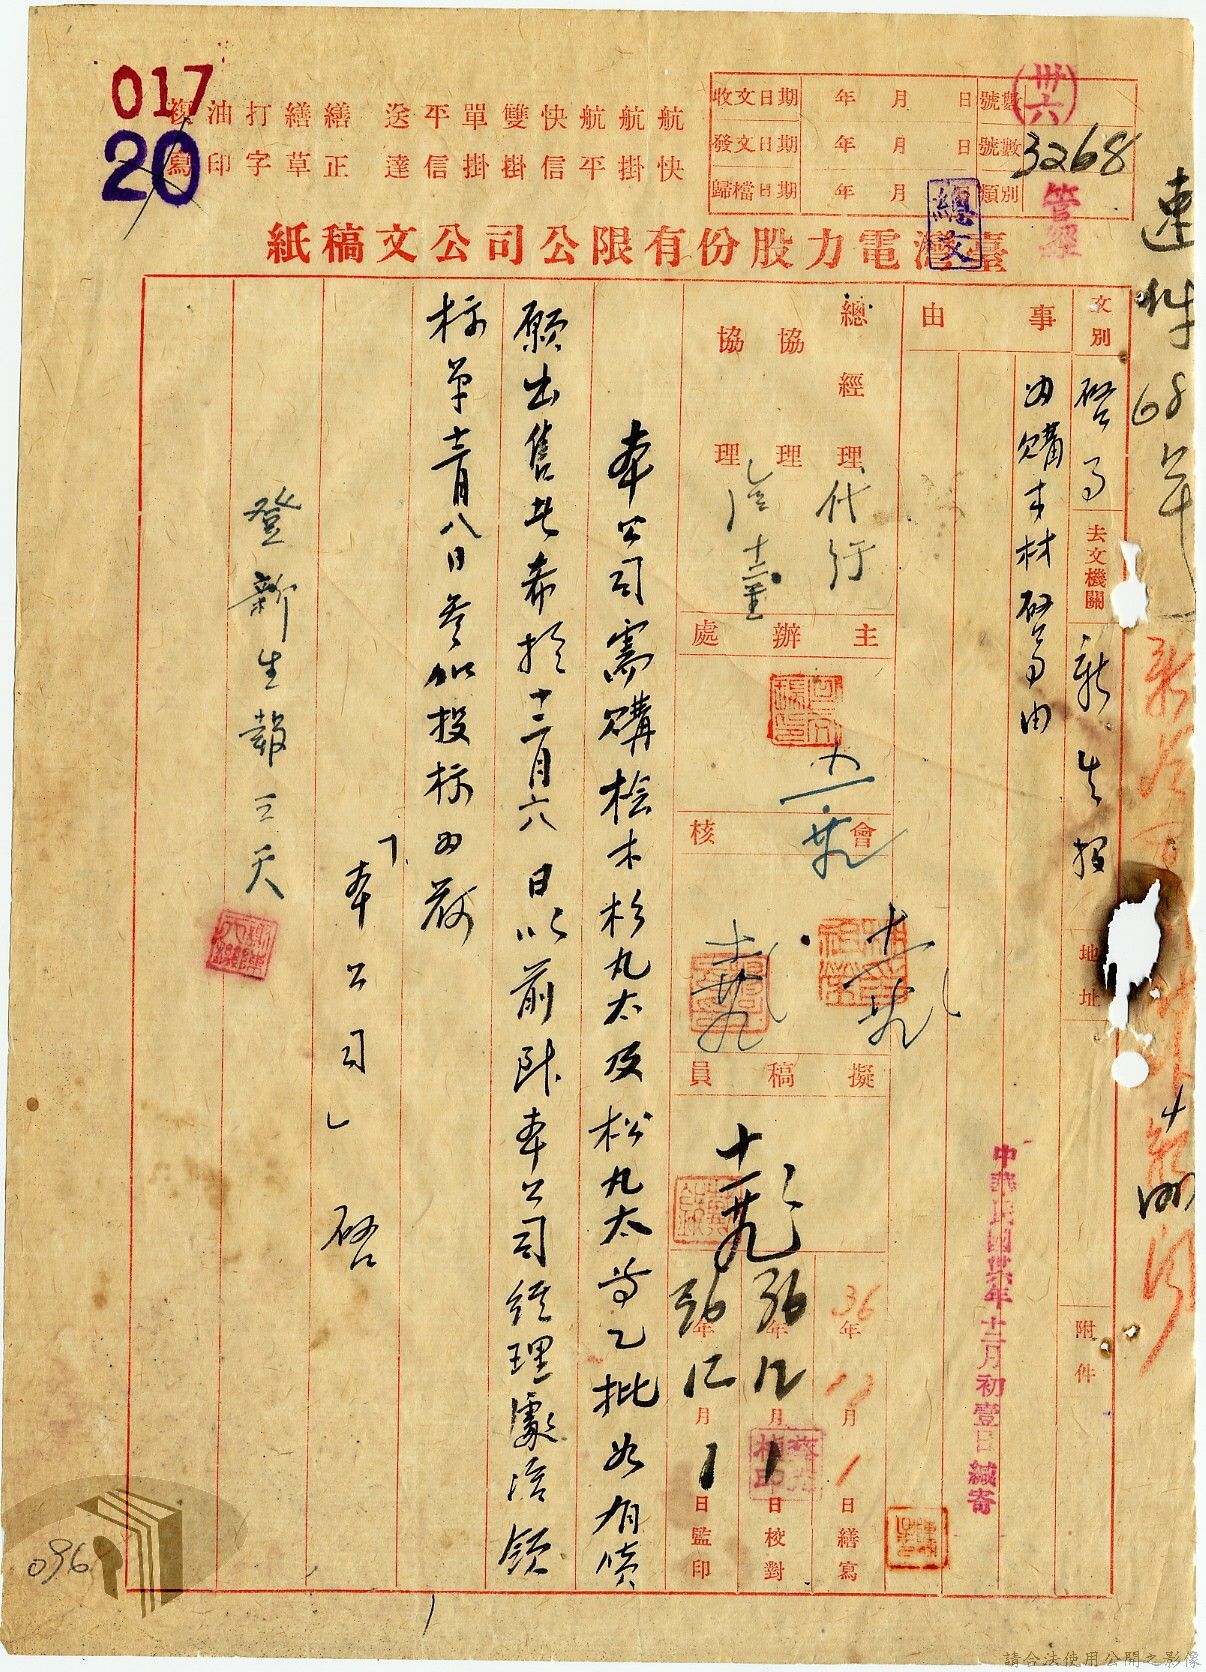 017
20
航快
航掛
航平
快信
雙掛
單掛
平信
送達
繕正
繕草
打字
油印
複寫
收文日期 年 月 日 號數
發文日期 年 月 日 號數 3268
歸檔日期 年 月 類別
(卅六)
管經
總文
速件
68年
臺灣電力股份有限公司公文稿紙
文別 啓事 去文機關 新生報 地址 附件
事由 為購木材啓事由
中華民國卅六年十二月初壹日緘寄
總經理 代行
協理
協理
主辦處
會核
擬稿員
36年12月1日繕寫
36年12月1日校對
36年12月1日監印
本公司需購桧木杉丸太及松丸太等乙批如有願
願出售者希於十二月六日以前附本公司經理處洽領
标单十二月八日參加投标为荷
「本公司」啓
登新生報三天
096
請合法使用公開之影像